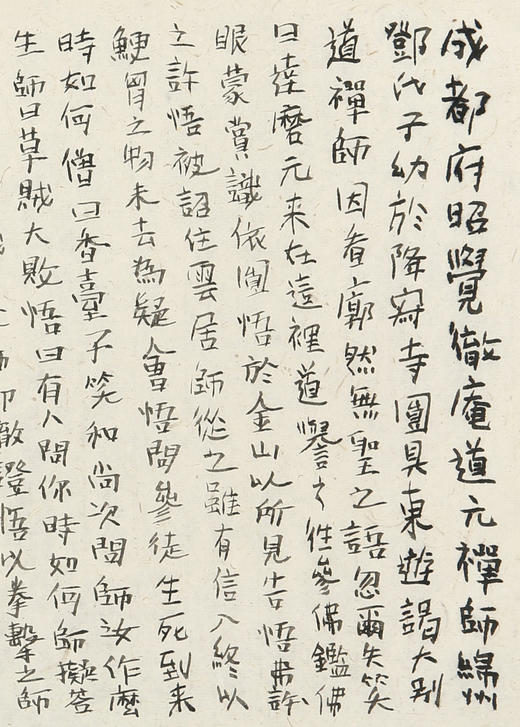 成都府昭覺徹庵道元禪師綿州
鄧氏子幼於降寂寺圓具東遊謁大別
道禪師因看廓然無聖之語忽爾失笑
曰達磨元来在這裡道譽之往參佛鑑佛
眼蒙賞識依圓悟於金山以所見告悟弗許
之許悟被詔住雲居師從之雖有信入終以
鯁胷之物未去為疑會悟問參徒生死到来
時如何僧曰香臺子笑和尚次問師汝作麼
生師曰草賊大敗悟曰有人問你時如何師擬答
徹證悟以拳擊之師